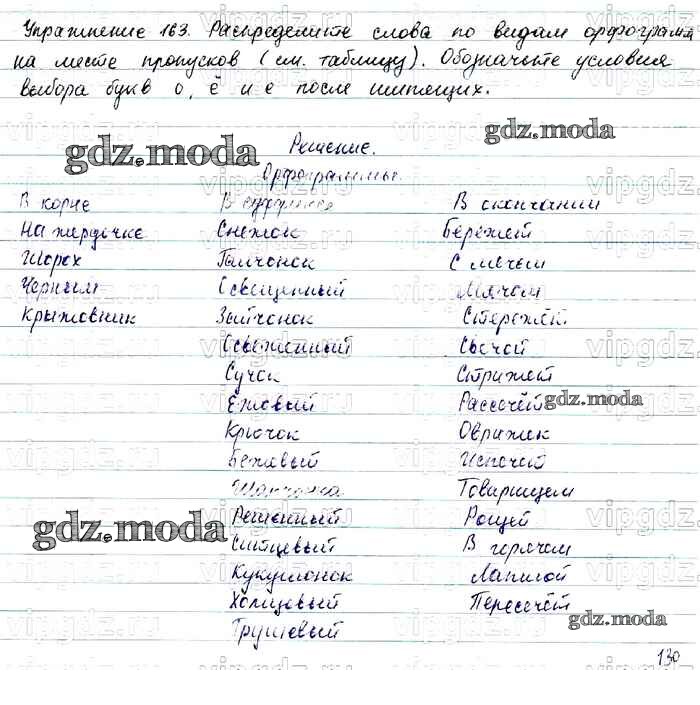 Упражнение 163. Распределите слова по видам орфограмм
на месте пропусков (см. таблицу). Обозначьте условия
выбора букв о, ё и е после шипящих.
Решение.
Орфограммы.
В корне В суффиксе В окончании
На жердочке Снежок Бережет
Шорох Галчонок С мечем
Черным Освещенный Мячом
Крыжовник Зайчонок Стережет
Освеженный Свечой
Сучок Стрижет
Ежовый Рассечёт
Крючок Овражек
Бежевый Испечет
Шапчонка Товарищем
Решенный Рощей
Ситцевый В горячем
Кукушонок Лапшой
Холщевый Пересечёт
Грушевый
130
gdz.moda
gdz.moda
gdz.moda
gdz.moda
vipgdz.ru